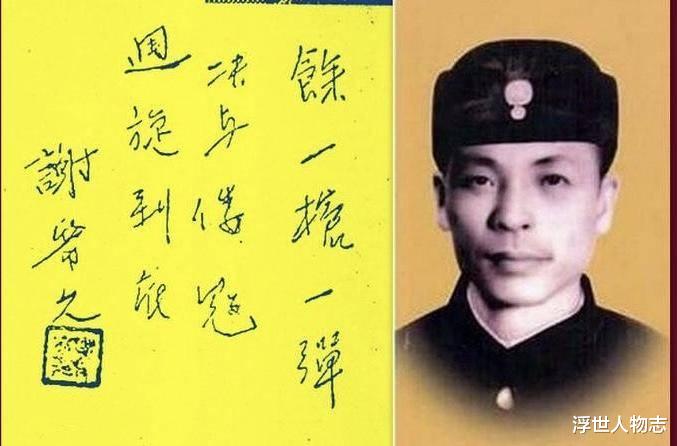 餘一槍一彈
决与倭寇
週旋到底
謝晋元
浮世人物志